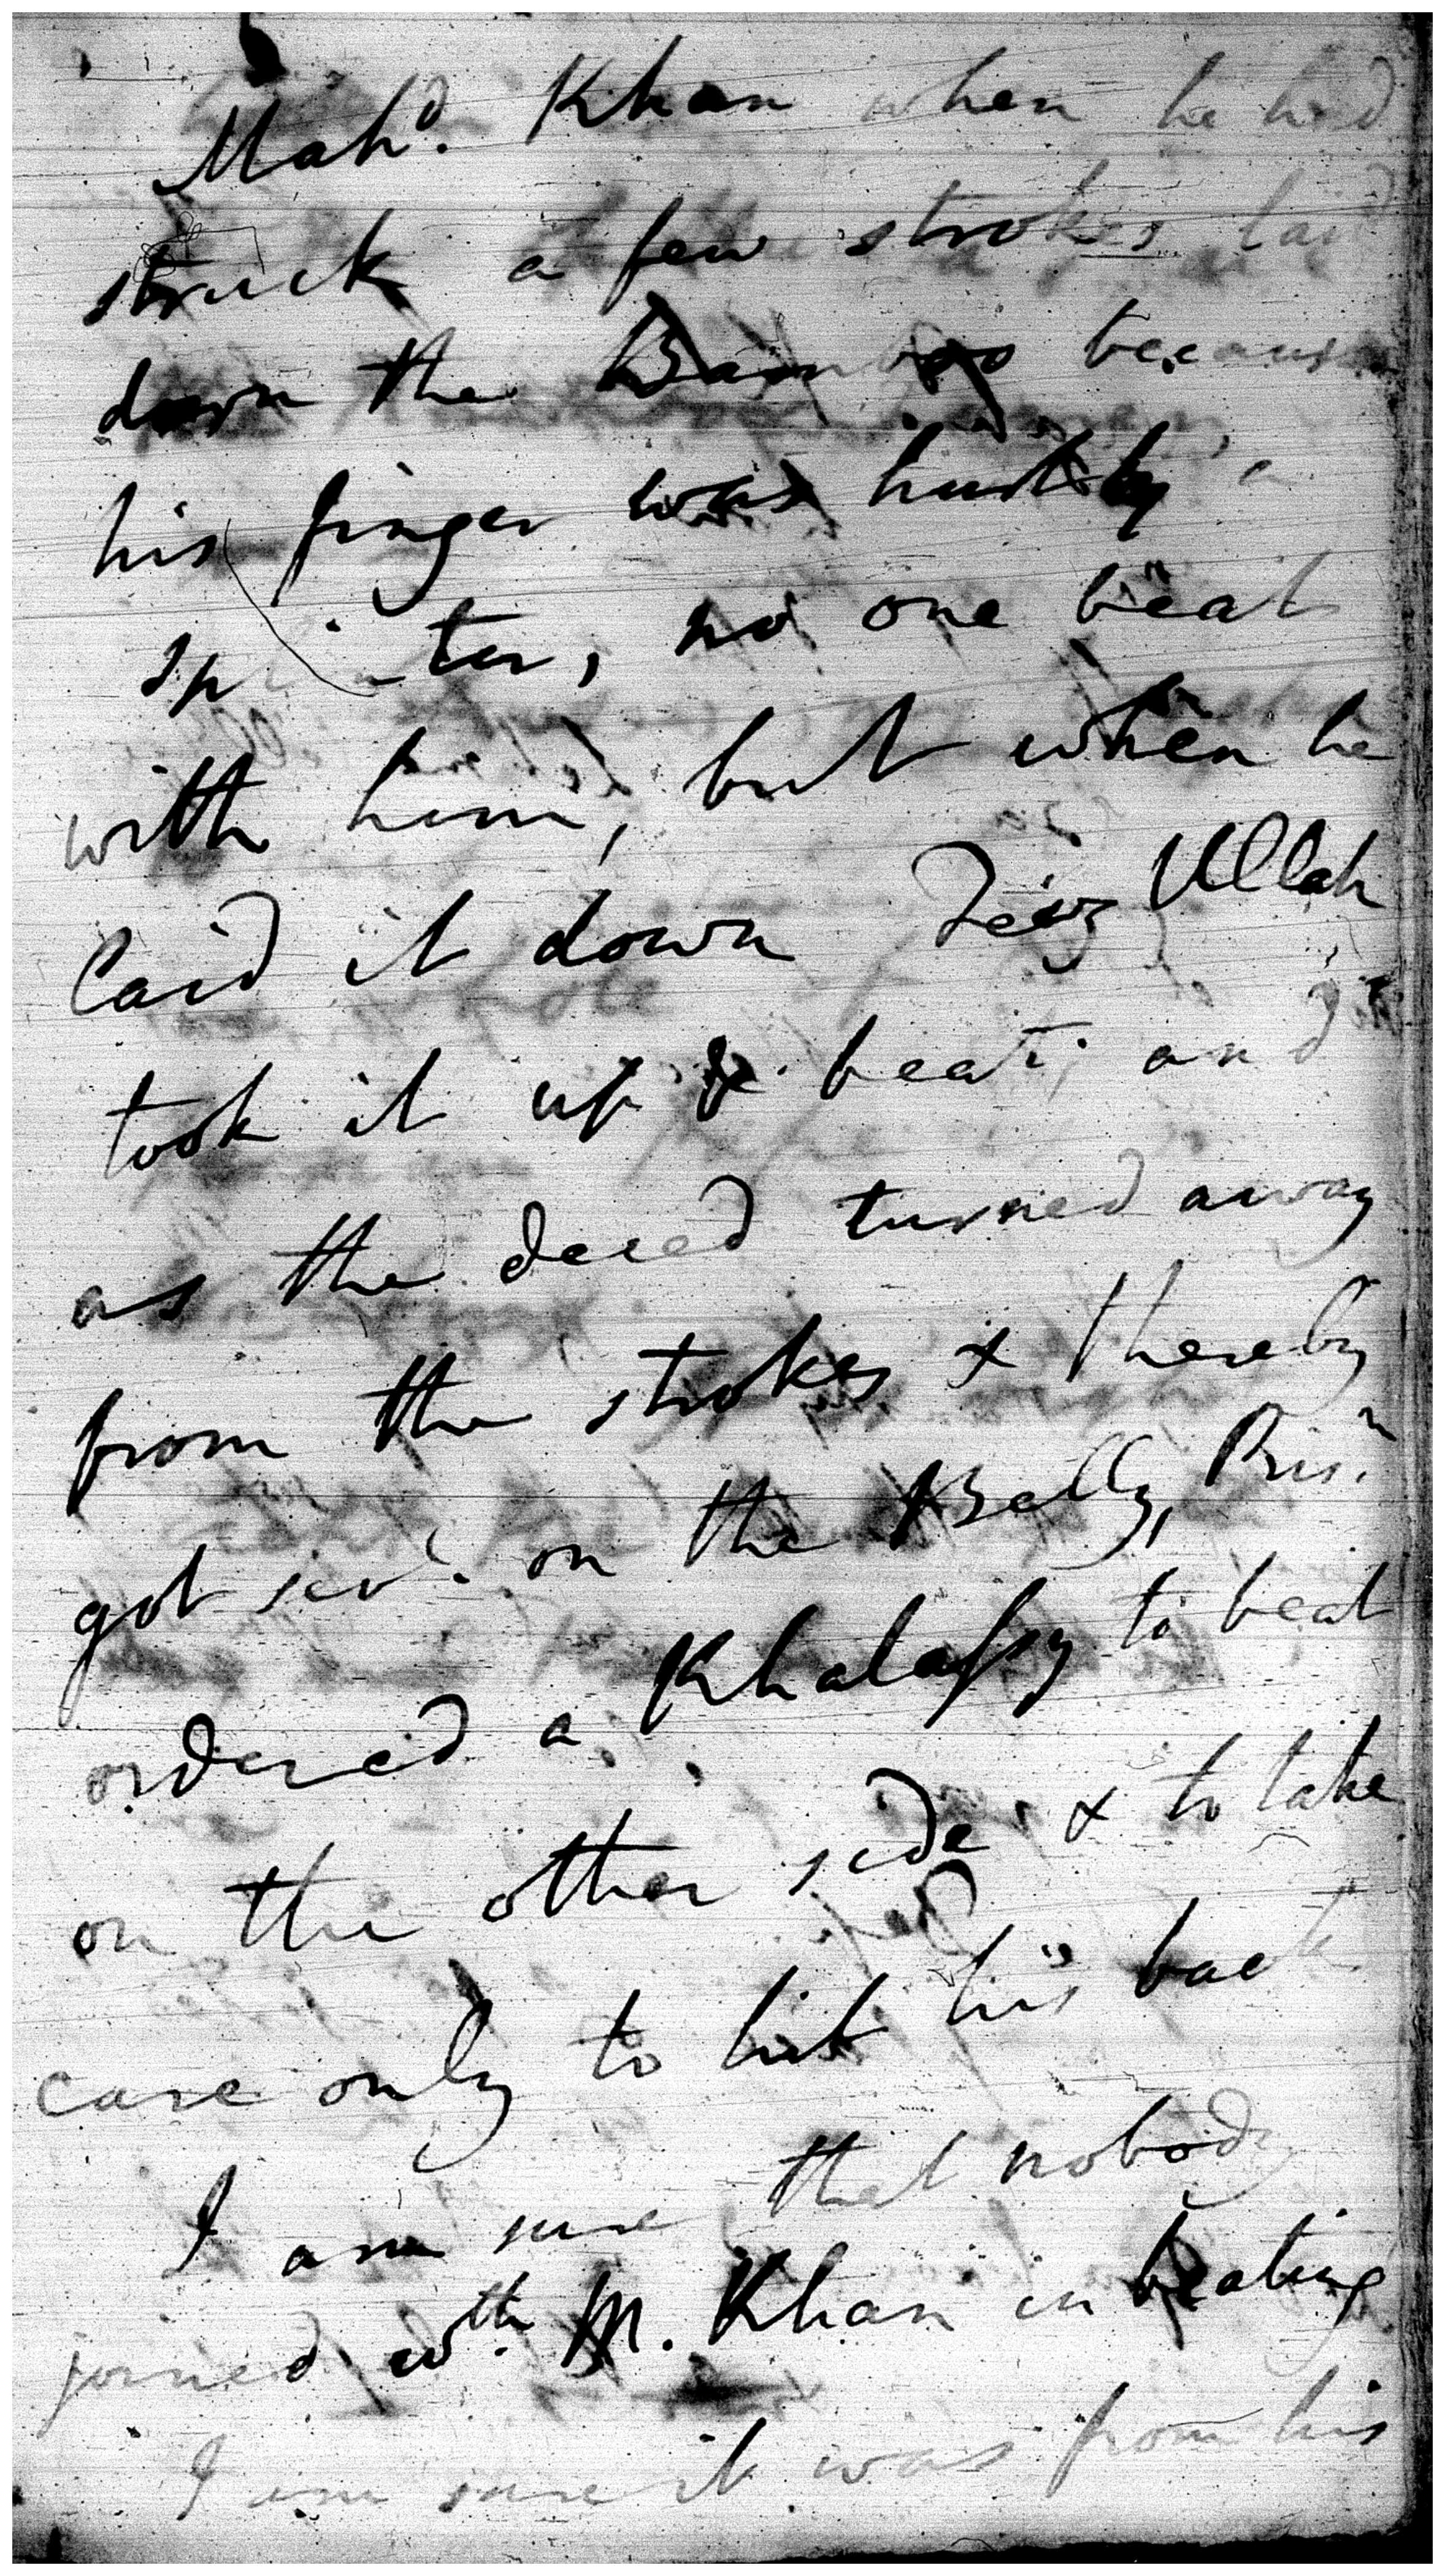 Mahd. Khan when he had
struck a few strokes laid
down the Bamboo because
his finger was hurt by a
spl ter, no one beat
with him, but when he
laid it down Feiz Ullah
took it up & beat; and
as the deced turned away
from the strokes & thereby
got sevl. on the Belly, Prisr.
ordered a Khalassy to beat
on the other side & to take
care only to hit his back
I am sure that nobody
joined wth. M. Khan in beating
I am sure it was from his